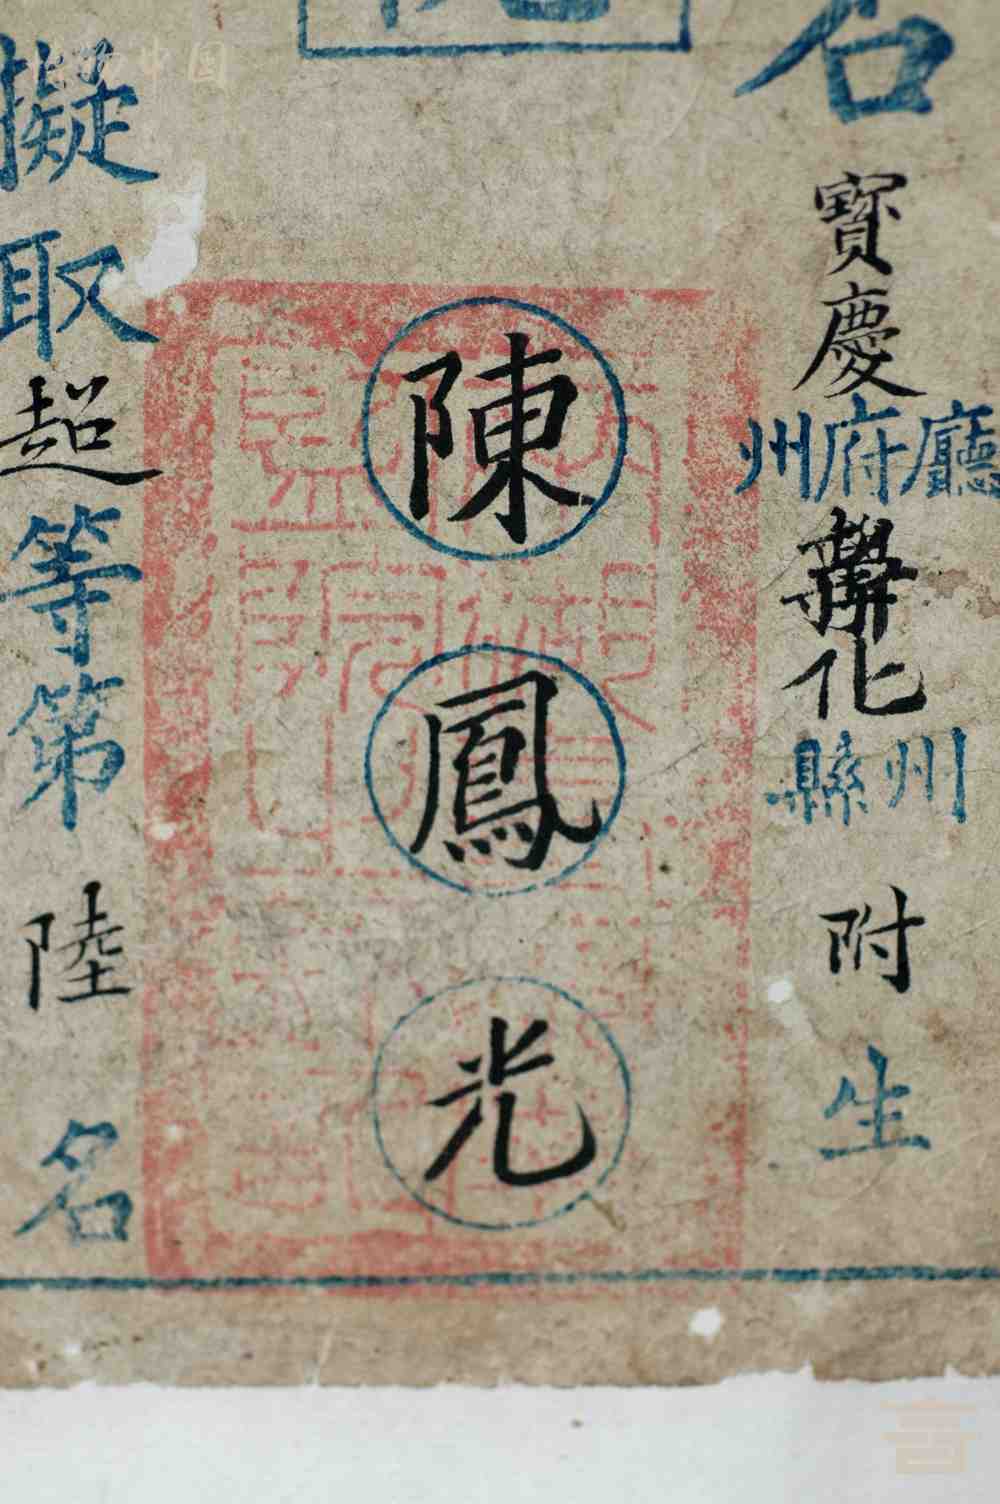 名
寶慶
廳府州
新化
州縣
附
生
陳鳳光
擬取超等第陸名
中国